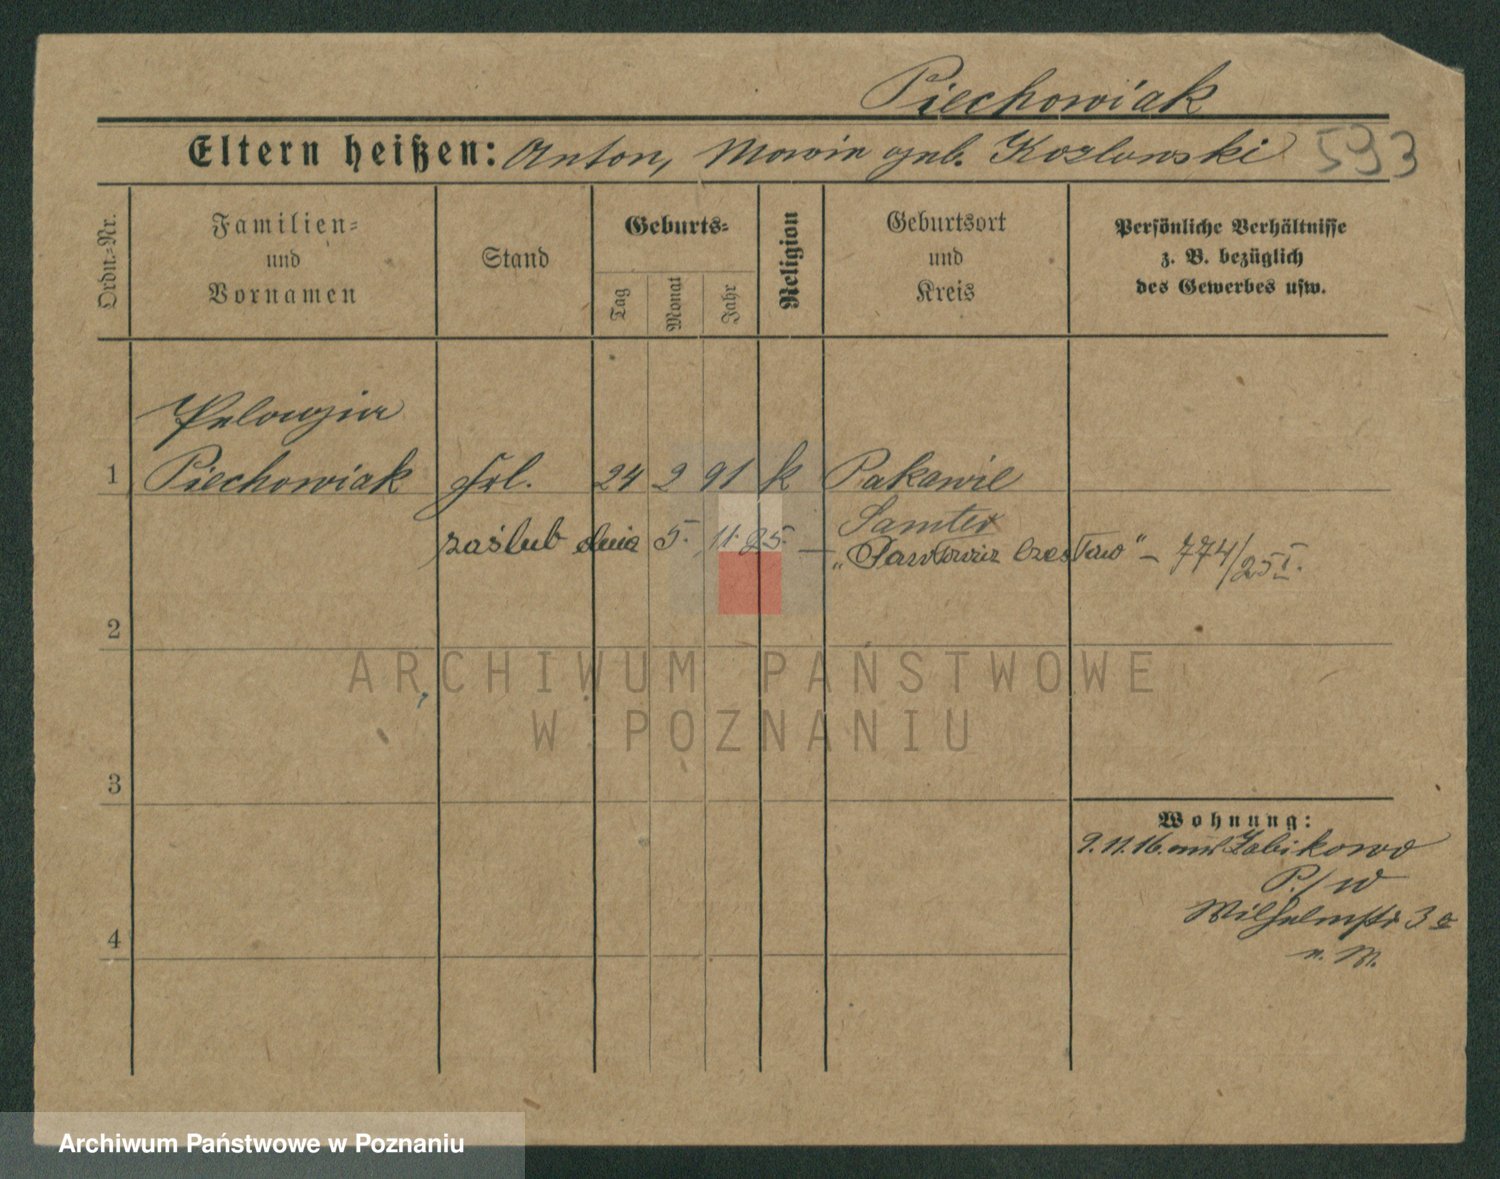 Piechowiak
Eltern heißen: Anton, Maria geb. Kozlowski 593
Ordn.-Nr.
Familien-
und
Vornamen
Stand
Geburts-
Tag
Monat
Jahr
Religion
Geburtsort
und
Kreis
Persönliche Verhältnisse
z. B. bezüglich
des Gewerbes usw.
Pelagia
1 Piechowiak Frl. 24 2 91 k Pakawie
Samter
zaślub dnia 5. 11. 25. — „Pawłowicz Czesław" – 774/25 I.
2
ARCHIWUM PAŃSTWOWE
W POZNANIU
3
Wohnung:
9.11.16. Zabikowo
P./W
Wilhelmstr 3a
n. M.
4
Archiwum Państwowe w Poznaniu